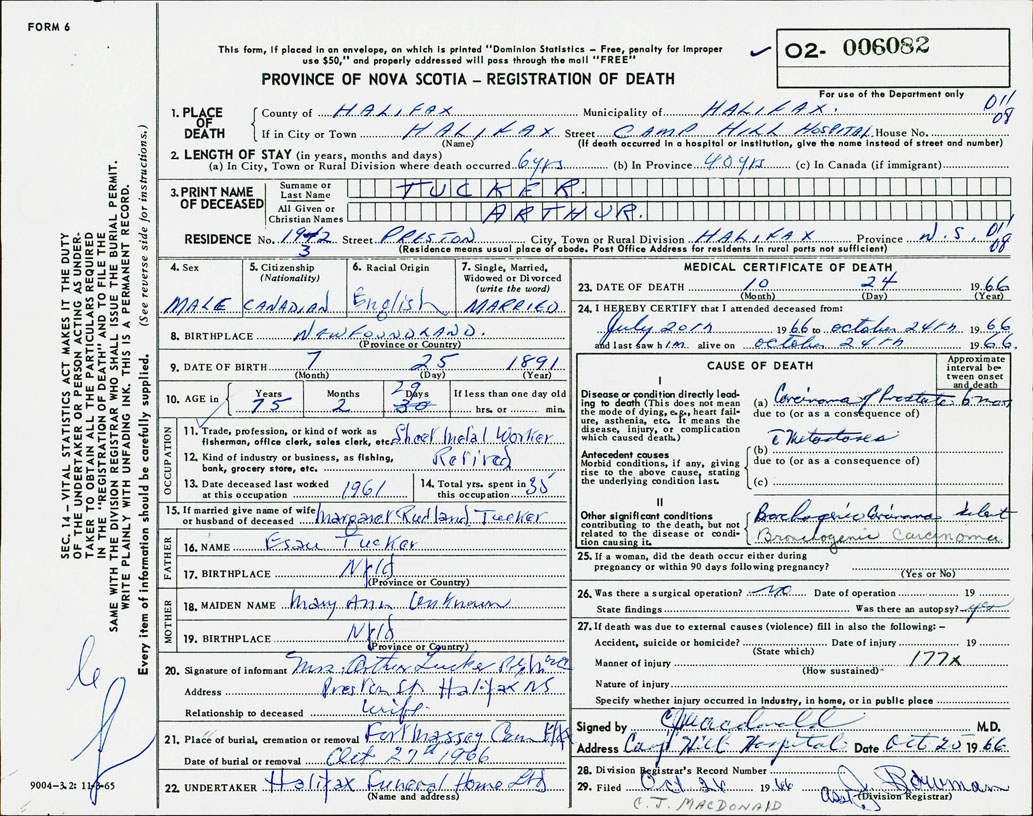 FORM 6
This form, if placed in an envelope, on which is printed "Dominion Statistics – Free, penalty for improper
use $50," and properly addressed will pass through the mail "FREE"
✓ 02- 006082
PROVINCE OF NOVA SCOTIA – REGISTRATION OF DEATH
For use of the Department only
1. PLACE OF DEATH County of HALIFAX Municipality of HALIFAX. 011
If in City or Town HALIFAX Street CAMP HILL HOSPITAL House No. 08
(Name) (If death occurred in a hospital or institution, give the name instead of street and number)
2. LENGTH OF STAY (in years, months and days)
(a) In City, Town or Rural Division where death occurred 6 yrs (b) In Province 40 yrs (c) In Canada (if immigrant)
3. PRINT NAME OF DECEASED Surname or Last Name TUCKER.
All Given or Christian Names ARTHUR.
RESIDENCE No. 1942 Street PRESTON City, Town or Rural Division HALIFAX Province N.S. 011
3 (Residence means usual place of abode. Post Office Address for residents in rural parts not sufficient) 08
4. Sex 5. Citizenship (Nationality) 6. Racial Origin 7. Single, Married, Widowed or Divorced (write the word)
MALE CANADIAN English MARRIED
8. BIRTHPLACE NEWFOUNDLAND.
(Province or Country)
9. DATE OF BIRTH 7 25 1891
(Month) (Day) (Year)
10. AGE in Years Months Days If less than one day old
29
75 2 30 hrs. or min.
OCCUPATION
11. Trade, profession, or kind of work as fisherman, office clerk, sales clerk, etc. Sheet Metal Worker
12. Kind of industry or business, as fishing, bank, grocery store, etc. Retired
13. Date deceased last worked at this occupation 1961 14. Total yrs. spent in this occupation 35
15. If married give name of wife or husband of deceased Margaret Tucker
FATHER
16. NAME Esau Tucker
17. BIRTHPLACE Nfld
(Province or Country)
MOTHER
18. MAIDEN NAME Mary Ann Unknown
19. BIRTHPLACE Nfld
(Province or Country)
20. Signature of informant Mrs. Arthur Tucker
Address Preston St Halifax NS
Relationship to deceased wife.
21. Place of burial, cremation or removal Fort Massey Cem Hfx
Date of burial or removal Oct 27th 1966
22. UNDERTAKER Halifax Funeral Home Ltd
(Name and address)
MEDICAL CERTIFICATE OF DEATH
23. DATE OF DEATH 10 24 1966
(Month) (Day) (Year)
24. I HEREBY CERTIFY that I attended deceased from:
July 20th 1966 to October 24th 1966
and last saw him alive on October 24th 1966.
CAUSE OF DEATH Approximate interval between onset and death
I
Disease or condition directly leading to death (This does not mean the mode of dying, e.g., heart failure, asthenia, etc. It means the disease, injury, or complication which caused death.)
(a) Carcinoma of Prostate 6 mos
due to (or as a consequence of)
Metastases
Antecedent causes
Morbid conditions, if any, giving rise to the above cause, stating the underlying condition last.
(b)
due to (or as a consequence of)
(c)
II
Other significant conditions contributing to the death, but not related to the disease or condition causing it.
Bronchogenic Carcinoma silent
Bronchogenic Carcinoma
25. If a woman, did the death occur either during pregnancy or within 90 days following pregnancy?
(Yes or No)
26. Was there a surgical operation? no Date of operation 19
State findings Was there an autopsy? yes
27. If death was due to external causes (violence) fill in also the following: –
Accident, suicide or homicide? Date of injury 19
(State which)
Manner of injury 177x
(How sustained)
Nature of injury
Specify whether injury occurred in Industry, in home, or in public place
Signed by CJ Macdonald M.D.
Address Camp Hill Hospital Date Oct 25 1966
28. Division Registrar's Record Number
29. Filed Oct 26 1966 asst J. Bowman
(Division Registrar)
C. J. MACDONALD
SEC. 14 – VITAL STATISTICS ACT MAKES IT THE DUTY
OF THE UNDERTAKER OR PERSON ACTING AS UNDER-
TAKER TO OBTAIN ALL THE PARTICULARS REQUIRED
IN THE "REGISTRATION OF DEATH" AND TO FILE THE
SAME WITH THE DIVISION REGISTRAR WHO SHALL ISSUE THE BURIAL PERMIT.
WRITE PLAINLY WITH UNFADING INK. THIS IS A PERMANENT RECORD.
Every item of information should be carefully supplied. (See reverse side for instructions.)
9004-3.2: 11-3-65